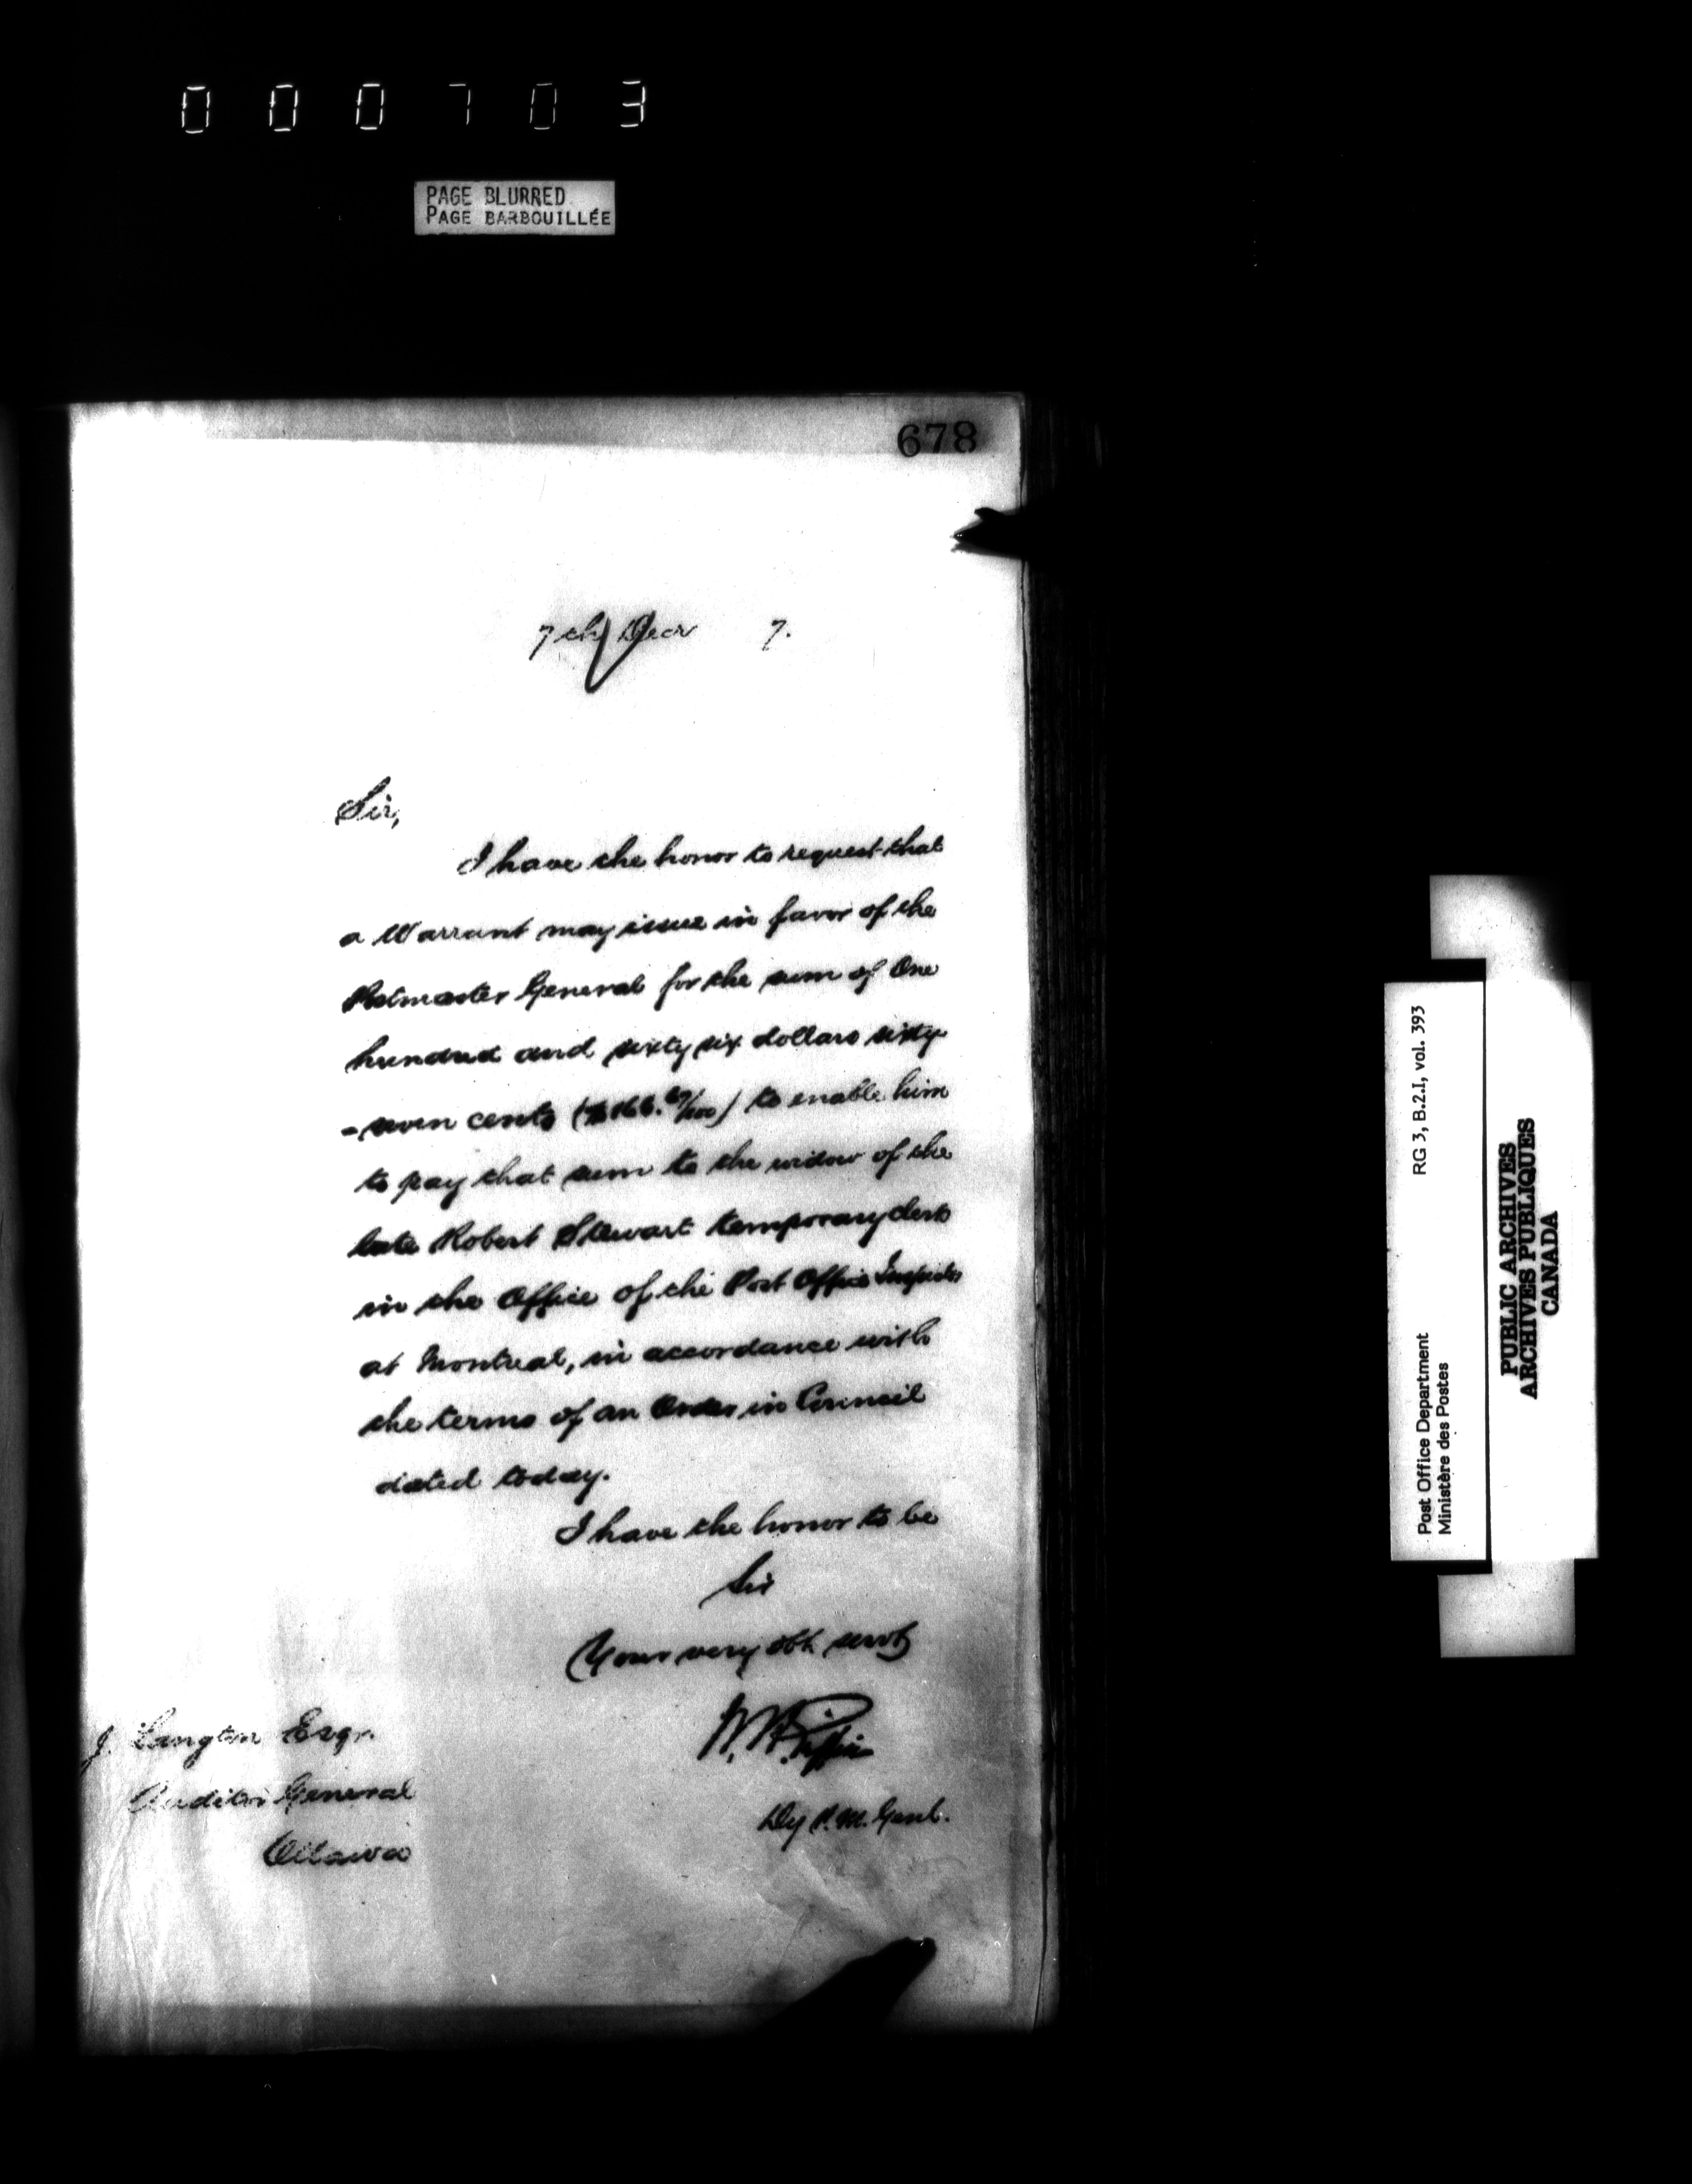 0 0 0 7 0 3
PAGE BLURRED
PAGE BARBOUILLÉE
678
7th Decr 7.
Sir,
I have the honor to request that
a Warrant may issue in favor of the
Postmaster General for the sum of One
hundred and sixty six dollars sixty
-seven cents ($166.67/100) to enable him
to pay that sum to the widow of the
late Robert Stewart temporary clerk
in the Office of the Post Office Inspector
at Montreal, in accordance with
the terms of an Order in Council
dated today.
I have the honor to be
Sir
Your very obt servt
W. H. Griffin
Dy P. M. Genl.
J. Langton Esqr.
Auditor General
Ottawa
Post Office Department RG 3, B.2.I, vol. 393
Ministère des Postes
PUBLIC ARCHIVES
ARCHIVES PUBLIQUES
CANADA